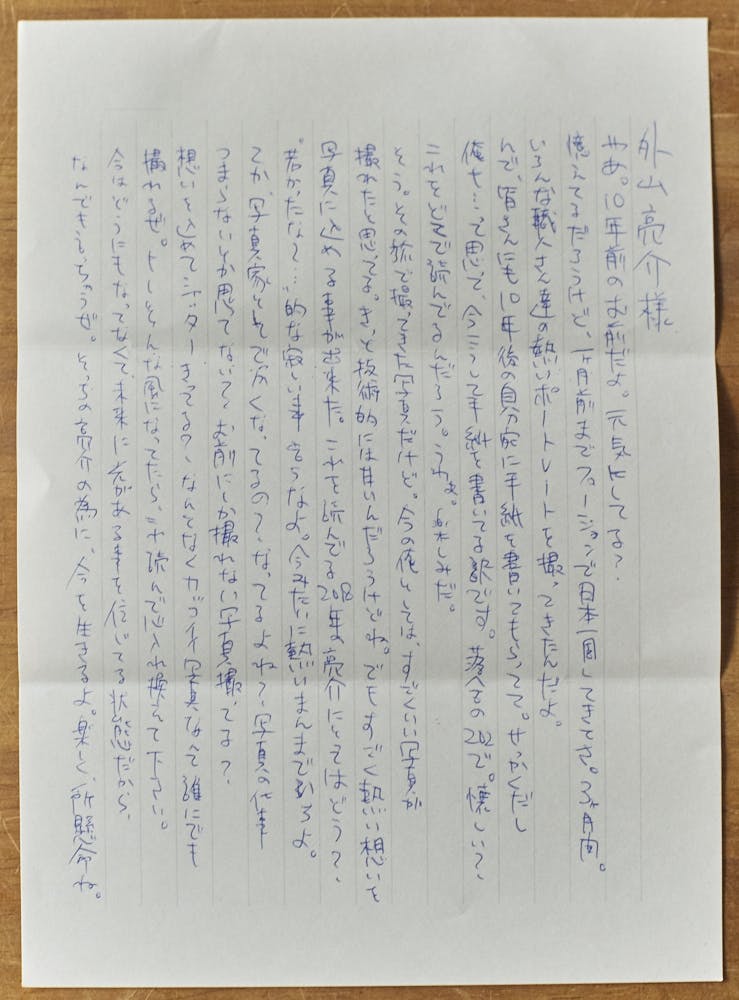 外山亮介様
やあ。10年前のお前だよ。元気にしてる?
憶えてるだろうけど、一ヶ月前までフュージョンで日本一周してきてさ。3ヶ月間。
いろんな職人さん達の熱いポートレートを撮ってきたんだよ。
んで、皆さんにも10年後の自分宛に手紙を書いてもらってて。せっかくだし
俺も…って思って、今こうして手紙を書いてる訳です。落合の202で。懐しい?
これをどこで読んでるんだろう。うわぁ。楽しみだ。
そう。その旅で撮ってきた写真だけど。今の俺としては、すごくいい写真が
撮れたと思ってる。きっと技術的には甘いんだろうけどね。でもすごく熱い想いを
写真に込める事が出来た。これを読んでる2018年の亮介にとってはどう?
"若かったな〜…"的な寂しい事言うなよ。今みたいに熱いまんまでいろよ。
てか、写真家としてデカくなってるの?なってるよね?写真の仕事
つまらないとか思ってないで、お前にしか撮れない写真撮ってる?
想いを込めてシャッターきってるの?なんとなくカッコイイ写真なんて誰にでも
撮れるぜ。もしそんな風になってたら、コレ読んで心入れ換えて下さい。
今はどうにもなってなくて、未来に光がある事を信じてる状態だから、
なんでも言っちゃうぜ。そっちの亮介の為に、今を生きるよ。楽しく、一所懸命ね。